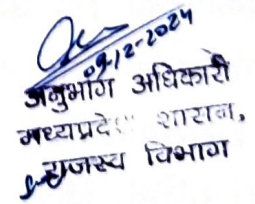 09/2-2024
अनुभाग अधिकारी
मध्यप्रदेश शासन,
राजस्व विभाग